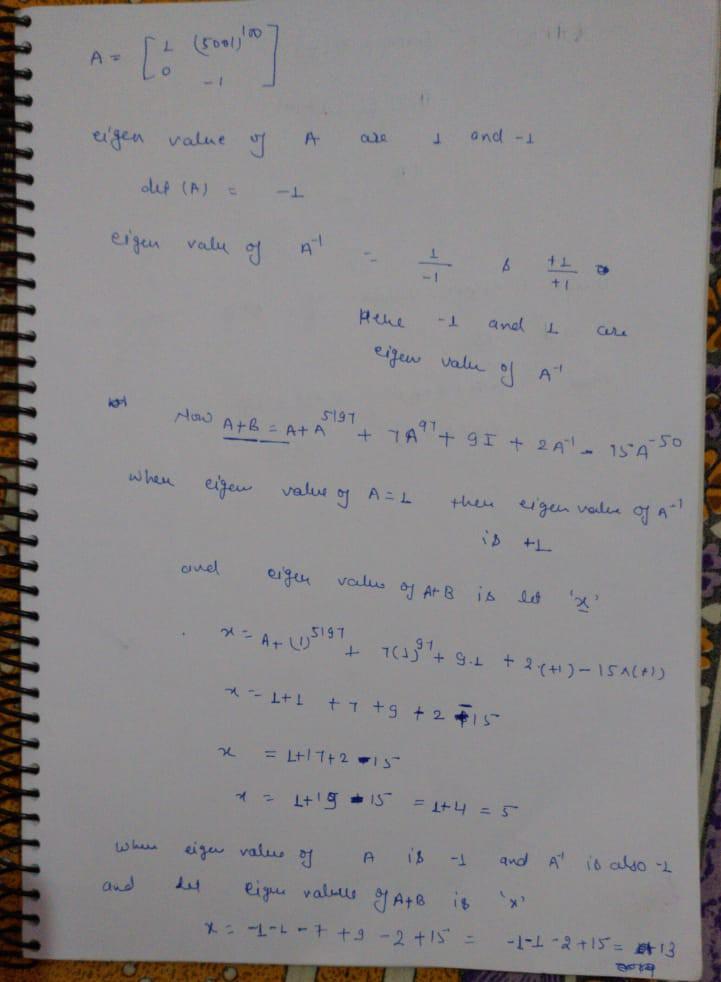 A = [ 1 (5001)^100
0 -1 ]
eigen value of A are 1 and -1
det (A) = -1
eigen valu of A^-1 = 1/-1 & +1/+1
Here -1 and 1 are
eigen valu of A^-1
Now A+B = A+A^5197 + 7A^97 + 9I + 2A^-1 - 15A^-50
when eigen value of A=1 then eigen value of A^-1
is +1
and eigen value of A+B is let 'x'
x = A+(1)^5197 + 7(1)^97 + 9.1 + 2(+1) - 15×(+1)
x = 1+1 + 7 + 9 + 2 - 15
x = 1+17+2 - 15
x = 1+19 - 15 = 1+4 = 5
when eigen value of A is -1 and A^-1 is also -1
and let eigen value of A+B is 'x'
x = -1-1-7 +9 -2 +15 = -1-1-2+15 = 13